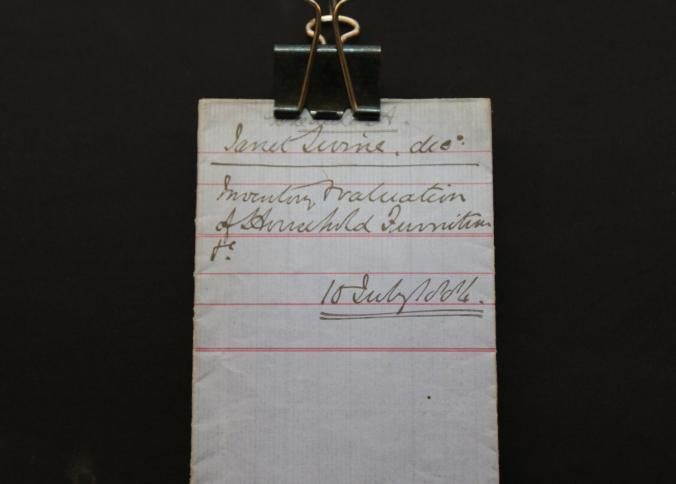 Janet Irvine. decd.
Inventory & valuation
of Household Furniture
&c
10 July 1884.